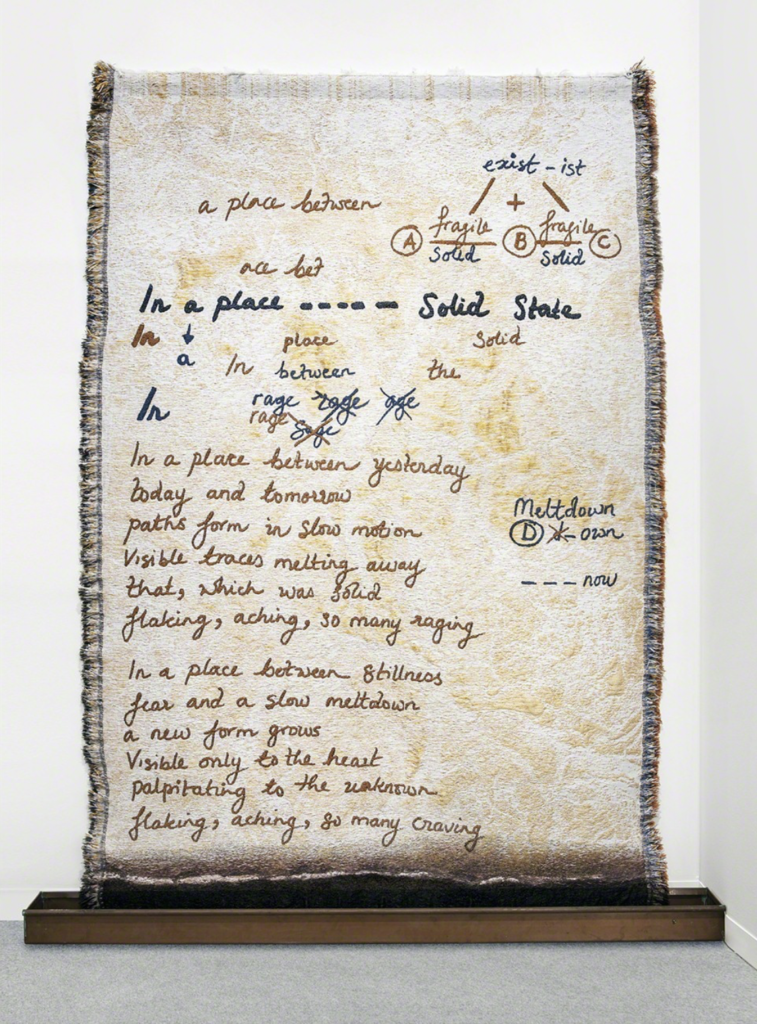 exist - ist
a place between
+
A fragile B fragile C
solid solid
ace bet
In a place ----- Solid State
In ↓ place Solid
a In between the
In rage rage age
rage Sage
In a place between yesterday
today and tomorrow
paths form in slow motion
Visible traces melting away
that, which was solid
flaking, aching, so many raging
Meltdown
D d - own
--- now
In a place between stillness
fear and a slow meltdown
a new form grows
Visible only to the heart
palpitating to the unknown
flaking, aching, so many craving